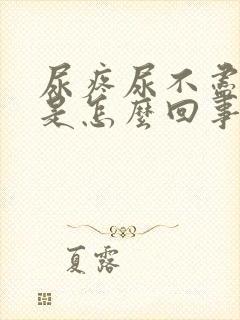 尿疼尿不盡
是怎麼回事
夏露